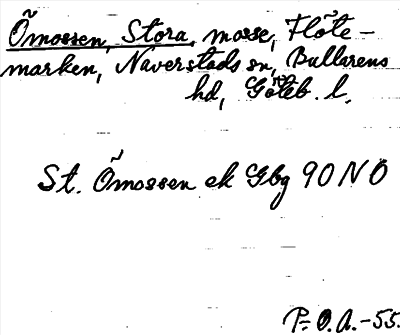 Õmossen, Stora, mosse, Flöte-
marken, Naverstads sn, Bullarens
hd, Göteb. l.
St. Õmossen ek Gbg 90 NO
P: O.A.-55.